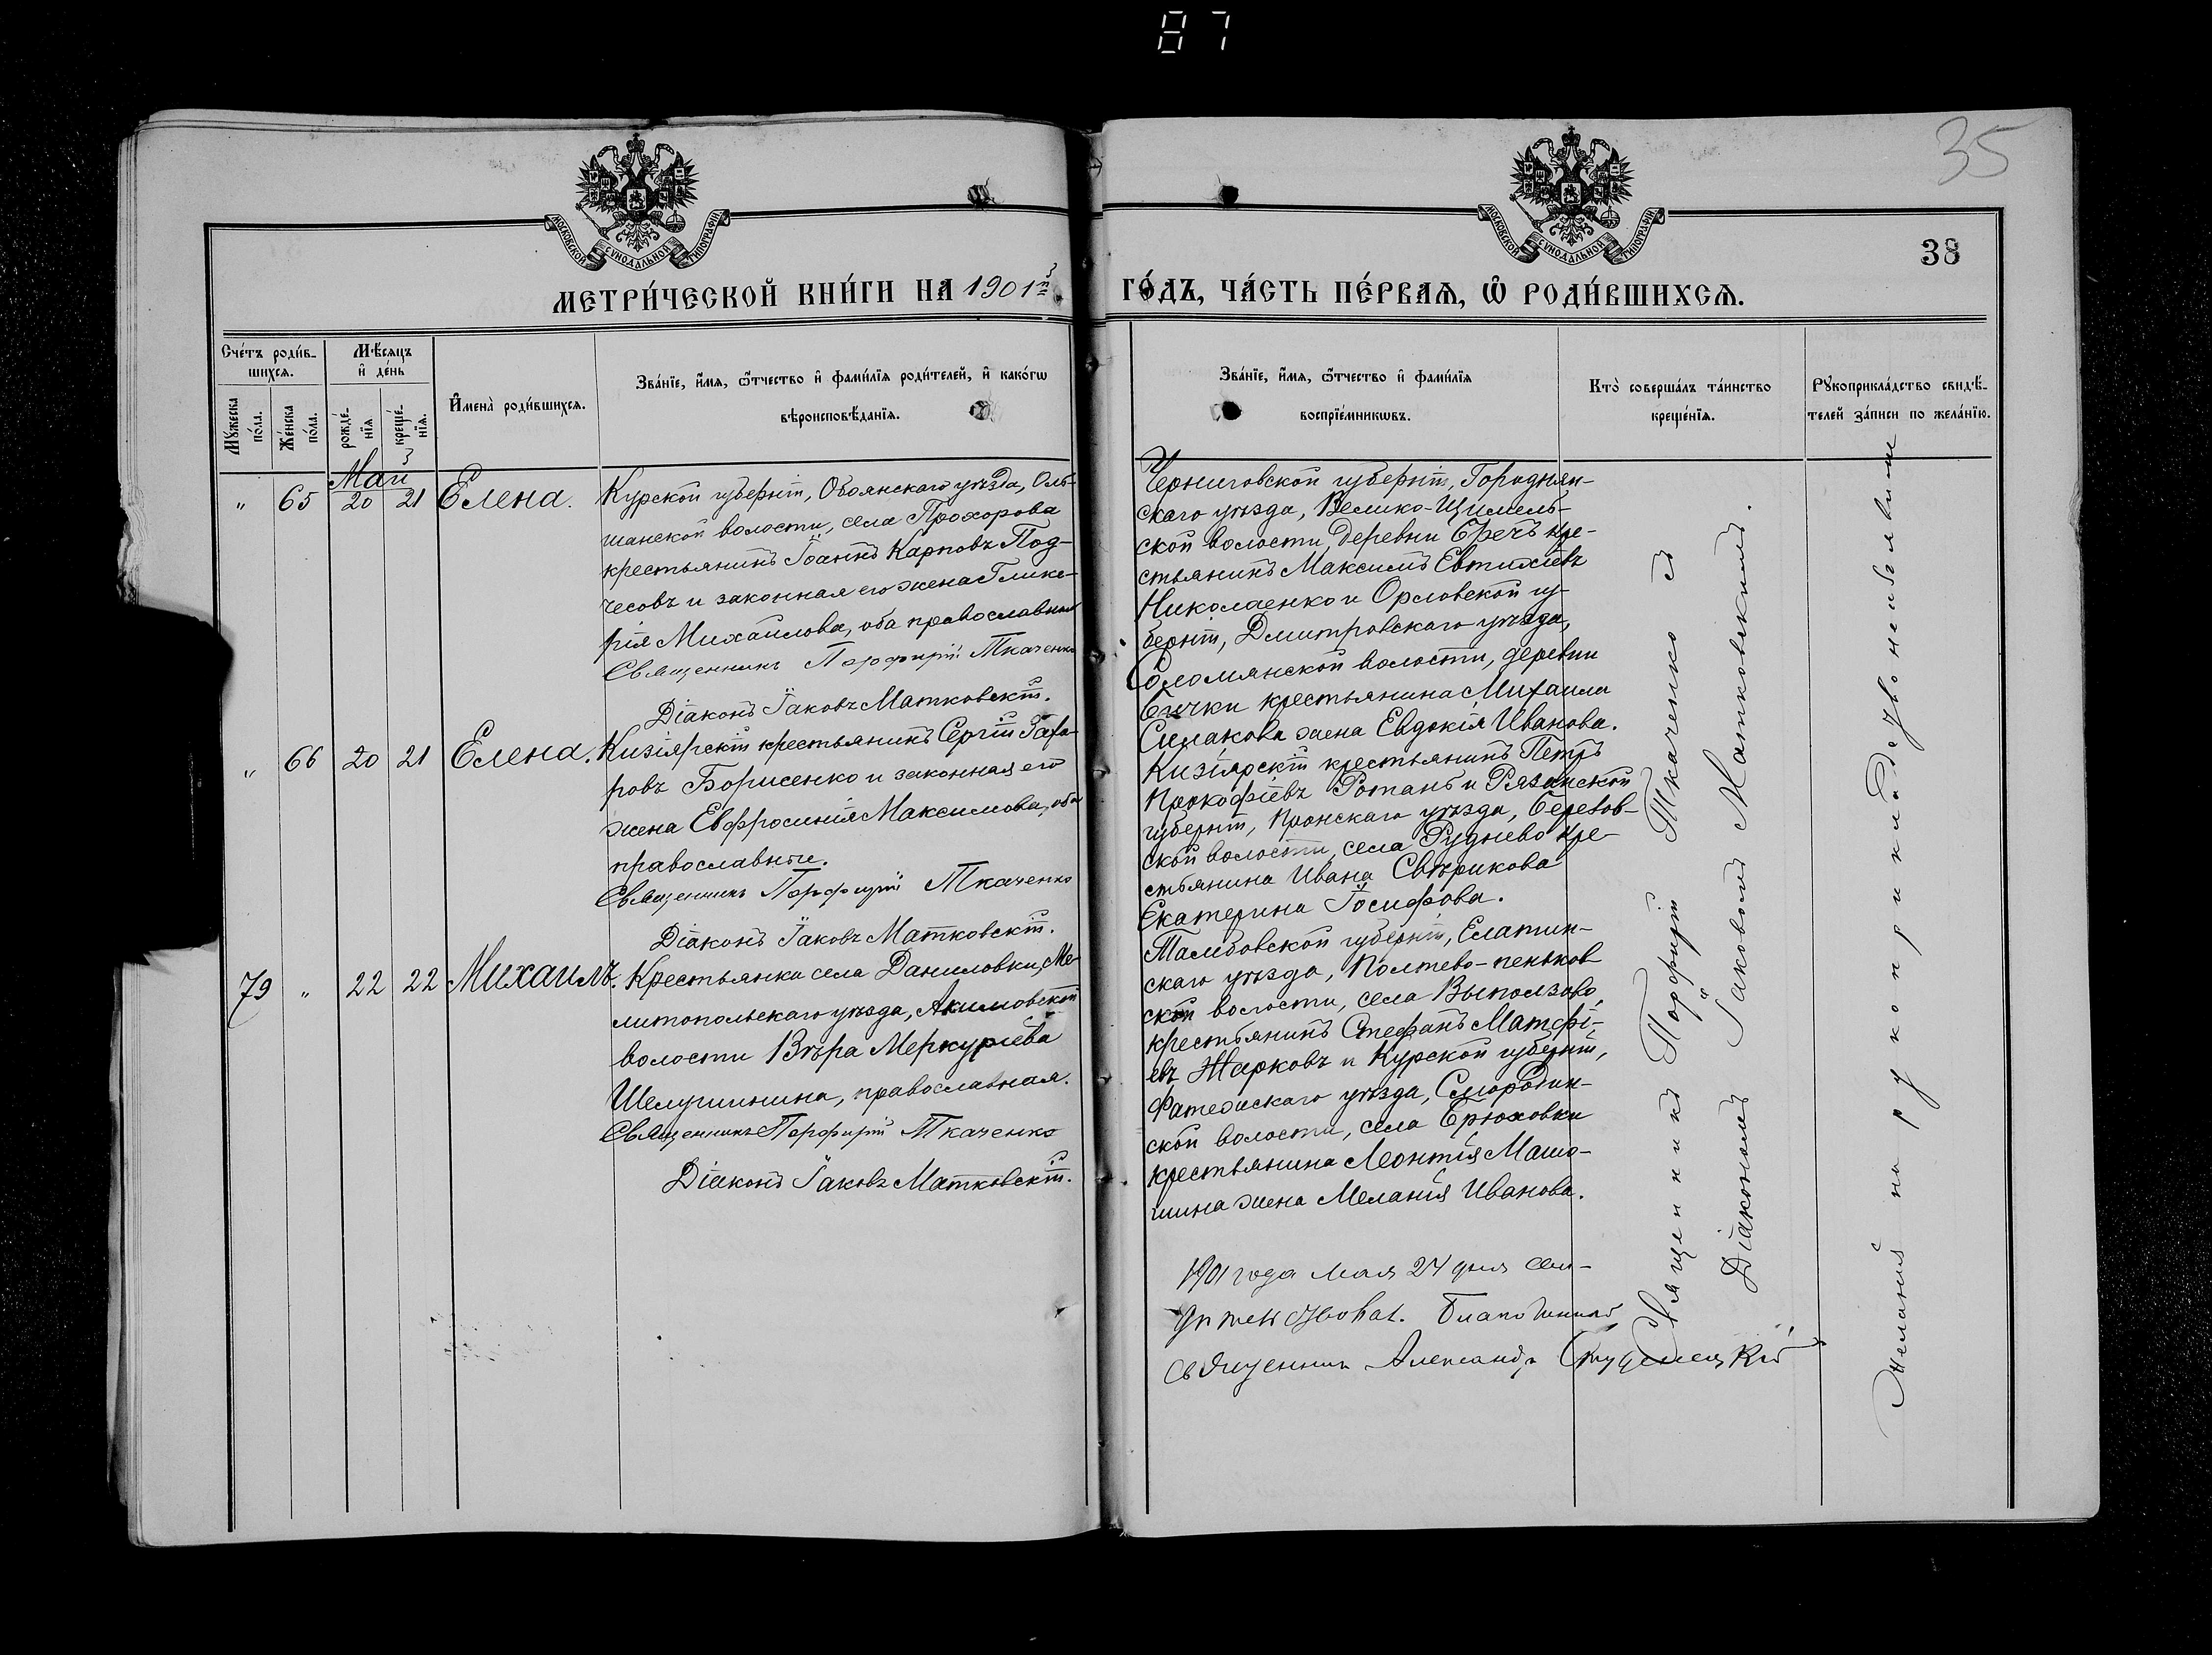 87
35
38
МОСКОВСКОЙ СѴНОДАЛЬНОЙ ТИПОГРАФІИ
МОСКОВСКОЙ СѴНОДАЛЬНОЙ ТИПОГРАФІИ
МЕТРИ́ЧЕСКОЙ КНИ́ГИ НА 1901й
ГО́ДЪ, ЧА́СТЬ ПЕ́РВАѦ, Ѡ҆ РОДИ́ВШИХСѦ.
Сче́тъ роди́в-
шихсѧ.
Мꙋ́жеска по́ла.
Же́нска по́ла.
Мѣ́сѧцъ
и҆ де́нь
рожде́-
нїѧ
креще́-
нїѧ.
И҆мена̀ роди́вшихсѧ.
Зва́нїе, и҆́мѧ, ѻ҆́тчество и҆ фами́лїѧ роди́телей, и҆ како́гѡ
вѣроисповѣ́данїѧ.
Зва́нїе, и҆́мѧ, ѻ҆́тчество и҆ фами́лїѧ
воспрїе́мникѡвъ.
Кто̀ соверша́лъ та́инство
креще́нїѧ.
Рꙋкоприкла́дство свидѣ́-
телей за́писи по жела́нїю.
Май
" 65 20 21 Елена.
Курской губерніи, Обоянскаго уѣзда, Оль-
шанской волости, села Прохорова
крестьянинъ Іоаннъ Карповъ Под-
чесовъ и законная его жена Глике-
рія Михаилова, оба православные
Священникъ Порфирій Ткаченко
Діаконъ Іаковъ Матковскій.
Черниговской губерніи, Городнян-
скаго уѣзда, Велико-Щимель-
ской волости, деревни Бречъ кре-
стьянинъ Максимъ Евтихіевъ
Николаенко и Орловской гу-
берніи, Дмитровскаго уѣзда,
Соломянской волости, деревни
крестьянина Михаила
Симакова жена Евдокія Иванова.
" 66 20 21 Елена.
Кизіярскій крестьянинъ Сергій Заха-
ровъ Борисенко и законная его
жена Евфросинія Максимова, оба
православные.
Священникъ Порфирій Ткаченко
Діаконъ Іаковъ Матковскій.
Кизіярскій крестьянинъ Петръ
Прокофіевъ Ротань и Рязанской
губерніи, Пронскаго уѣзда, Березов-
ской волости, села Руднево кре-
стьянина Ивана Свѣрикова
Екатерина Іосифова.
79 " 22 22 Михаилъ.
Крестьянка села Даниловки, Ме-
литопольскаго уѣзда, Акимовской
волости Вѣра Меркуріева
Шелушинина, православная.
Священникъ Порфирій Ткаченко
Діаконъ Іаковъ Матковскій.
Тамбовской губерніи, Елатом-
скаго уѣзда, Полтево-пеньков
ской волости, села Выползово,
крестьянинъ Стефанъ Матфі-
евъ Жарковъ и Курской губерніи,
Фатежскаго уѣзда, Смородин-
ской волости, села Брюховки
крестьянина Леонтія Машо-
шина жена Меланія Иванова.
Священникъ Порфирій Ткаченко съ
Діакономъ Іаковомъ Матковскимъ.
Желаній на рукоприкладство не изъявили
1901 года мая 24 дня сви-
Благочинный
священникъ Александр